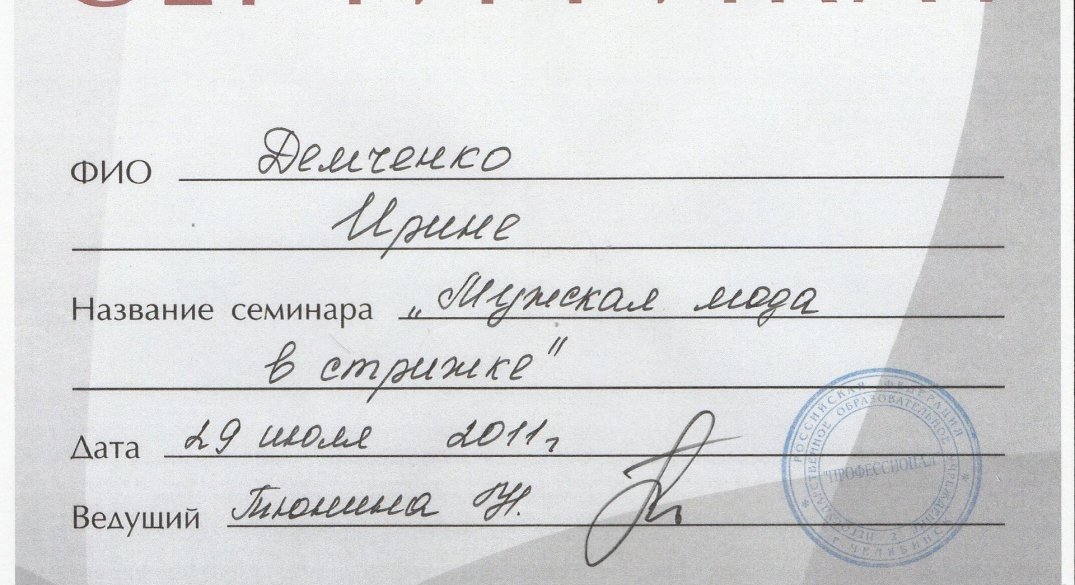 СЕРТИФИКАТ
ФИО Демченко
Ирине
Название семинара „Мужская мода
в стрижке"
Дата 29 июля 2011г
Ведущий Тюнина
РОССИЙСКАЯ ФЕДЕРАЦИЯ
ОБРАЗОВАТЕЛЬНОЕ УЧРЕЖДЕНИЕ
"ПРОФЕССИОНАЛ"
Г. ЧЕЛЯБИНСК